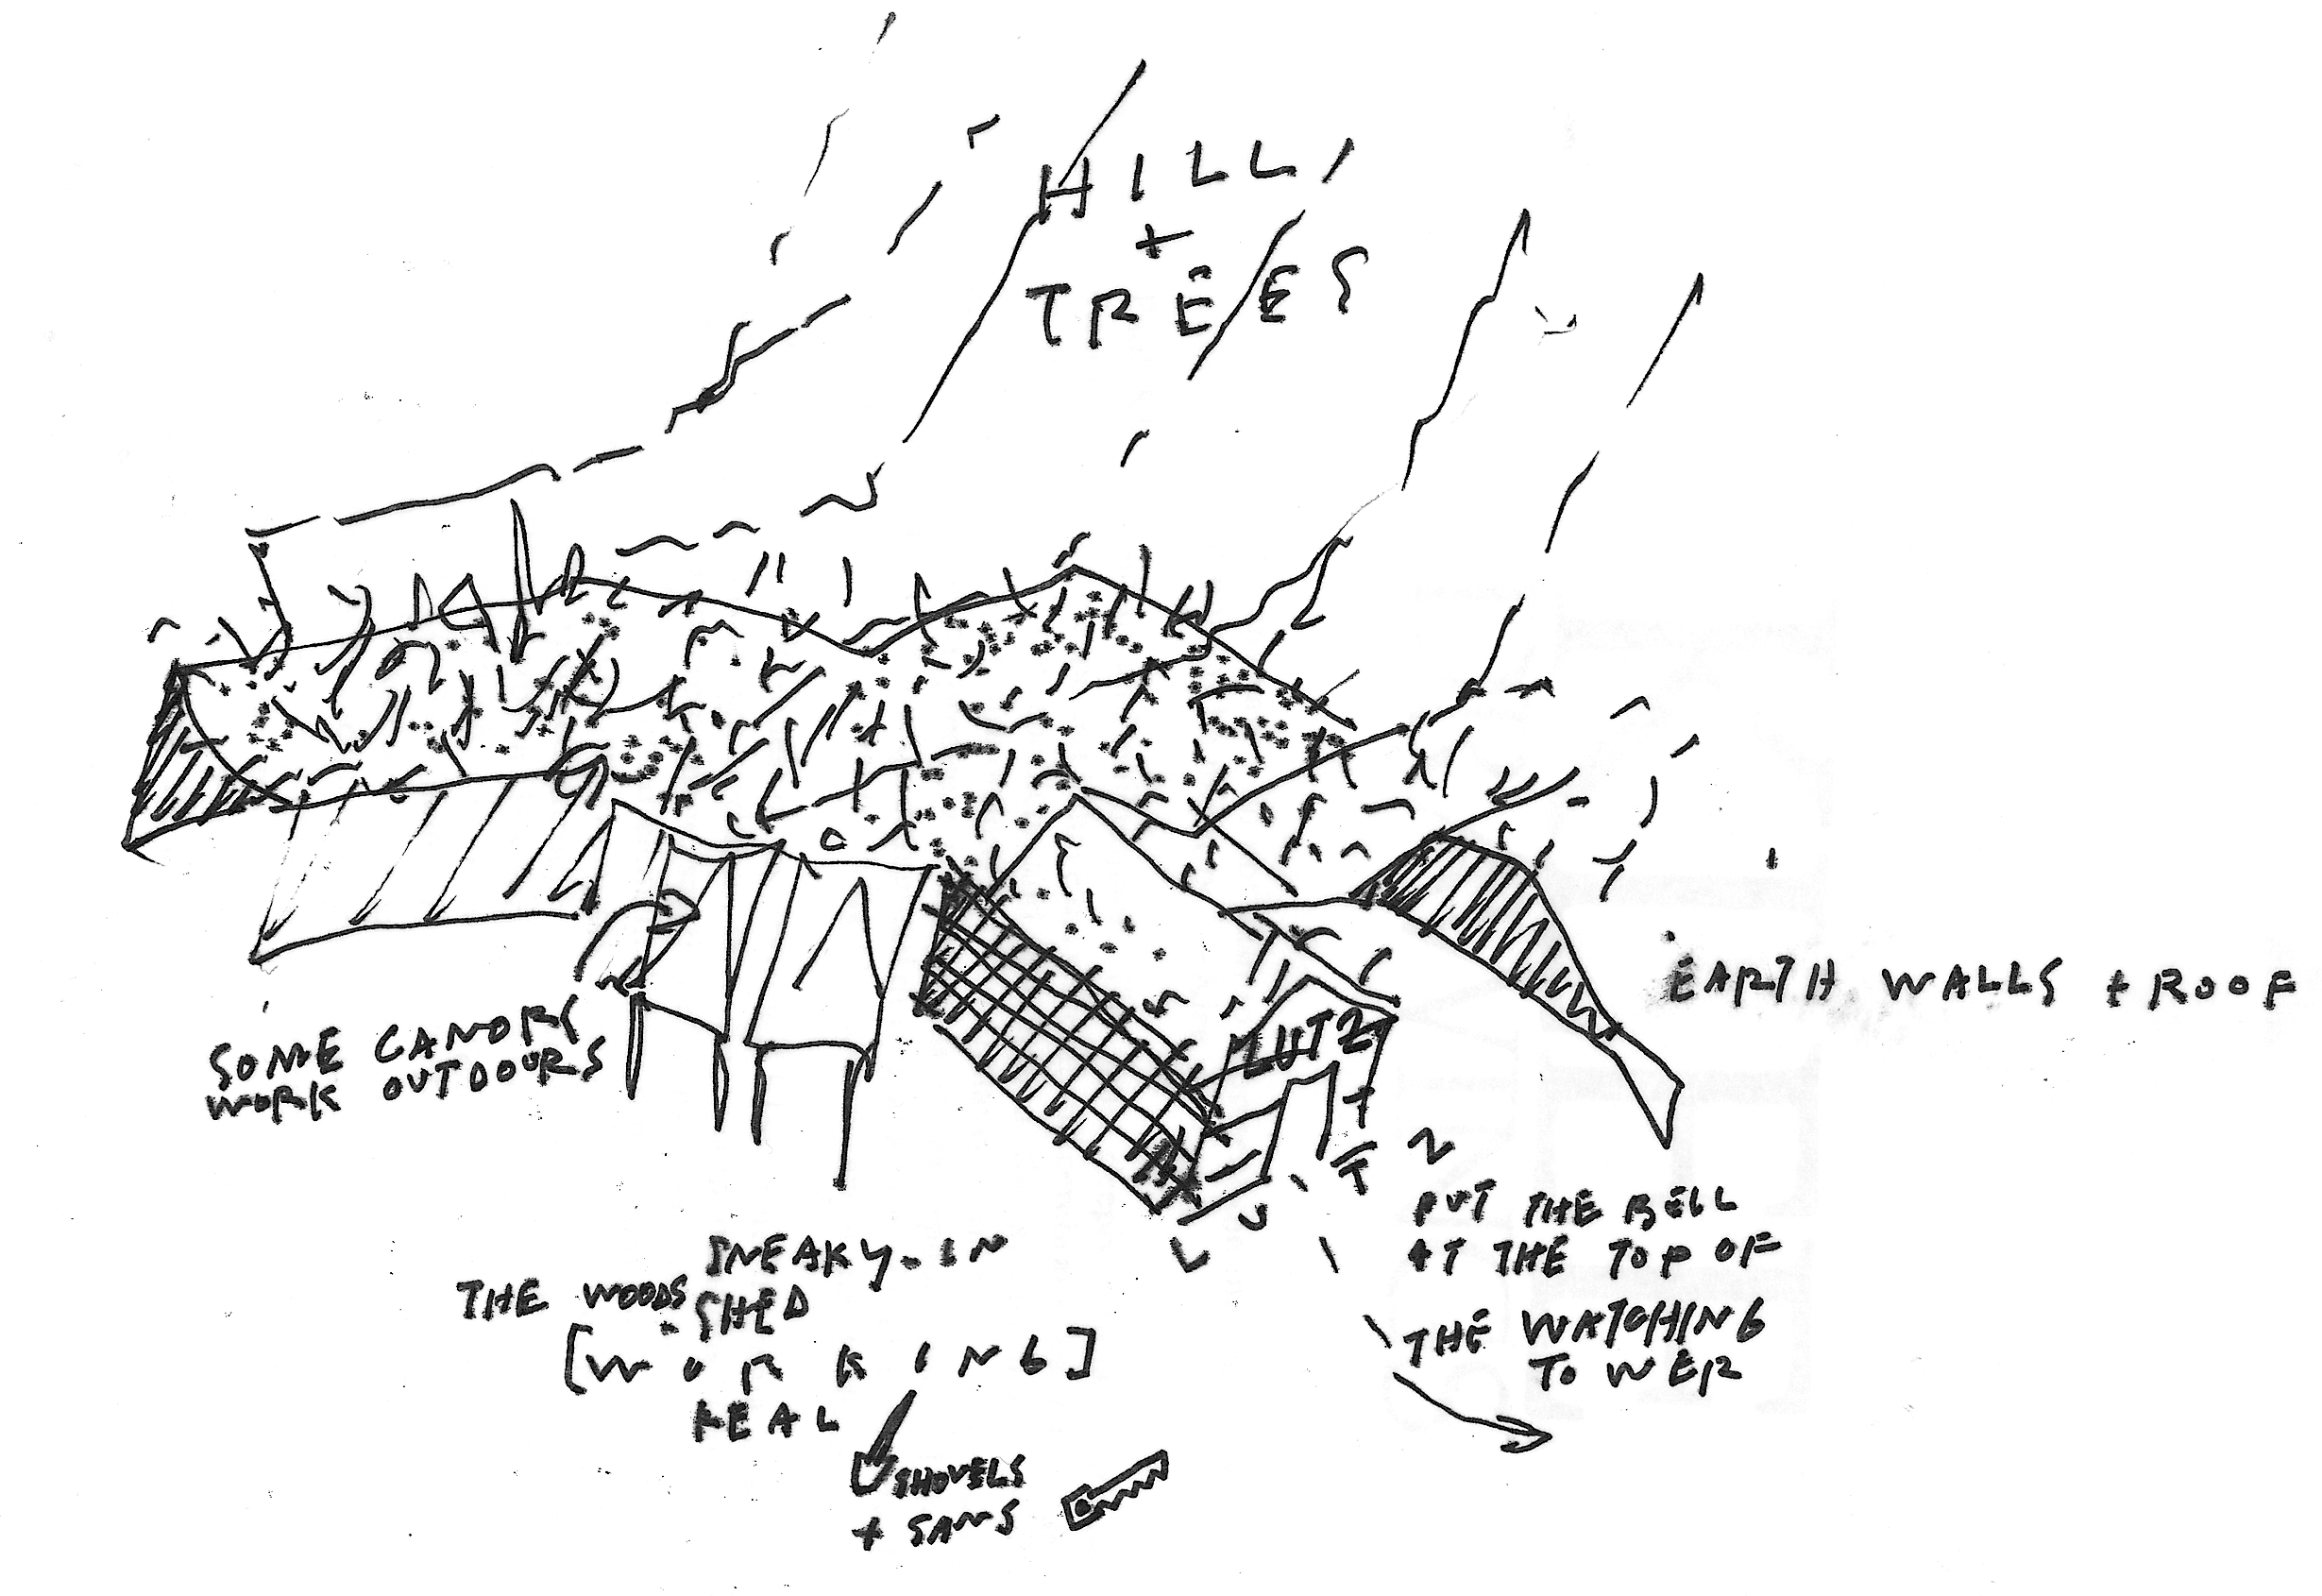 HILL
+
TREES
EARTH WALLS + ROOF
SOME CANOPS
WORK OUTDOORS
LUTZ
PUT THE BELL
AT THE TOP OF
THE WATCHING
TOWER
SNEAKY-IN
THE WOODS
SHED
[WORKING]
REAL
SHOVELS
+ SAWS